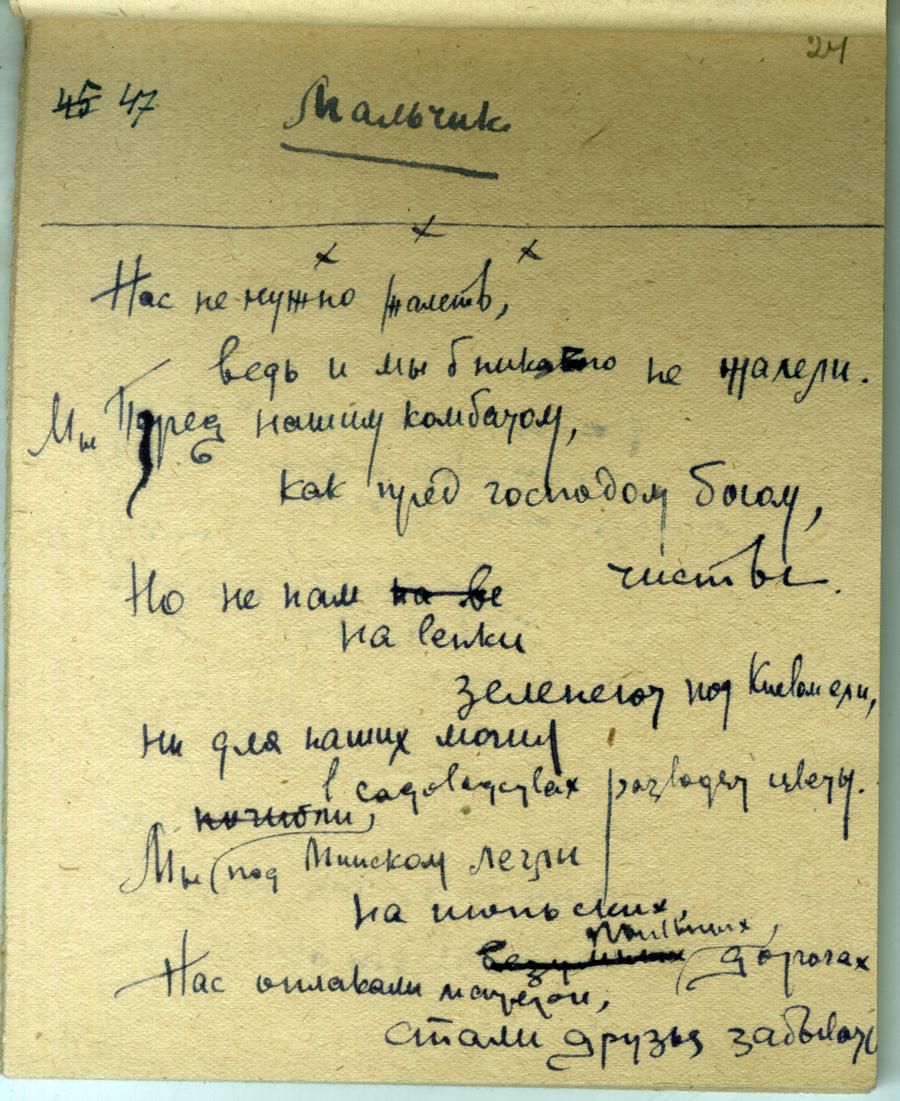 24
45 47
Мальчик
х х х
Нас не нужно жалеть,
ведь и мы б никого не жалели.
Мы Пред нашим комбатом,
как пред господом богом,
чисты.
Но не нам на ве
на венки
зеленеют под Киевом ели,
ни для наших могил
в садоводствах разводят цветы.
Мы под Минском легли
на июньских,
безумных
дорогах
Нас оплакали матери,
стали друзья забывать